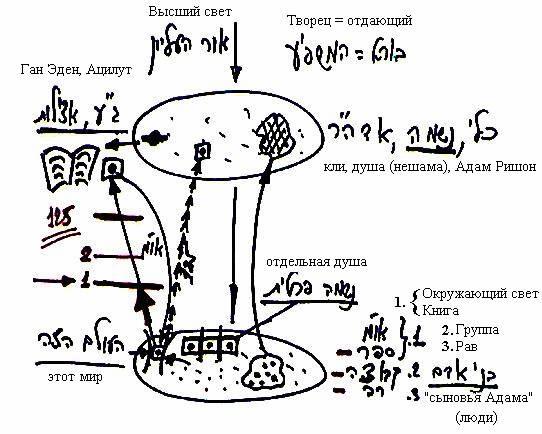 Высший свет
אור העליון
Творец = отдающий
בורא = המשפיע
Ган Эден, Ацилут
ג"ע, אצילות
כלי, נשמה, אדה"ר
кли, душа (нешама), Адам Ришон
125
2
או"מ
1
отдельная душа
נשמה פרטית
העולם הזה
этот мир
1. { Окружающий свет
Книга
2. Группа
3. Рав
או"מ
ספר } 1.
קבוצה 2.
רב 3.
בני אדם
"сыновья Адама"
(люди)